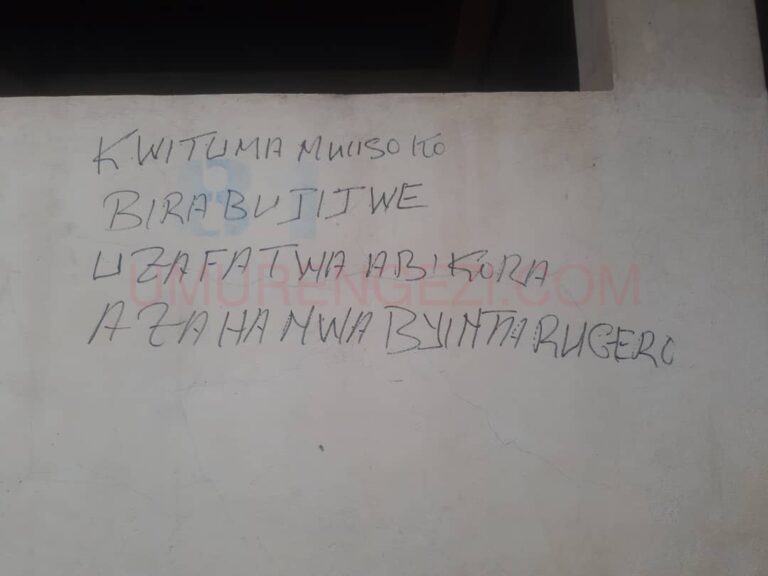 KWITUMA MWISOKO
81
BIRABUJIJWE
UZAFATWA ABIKORA
UMURENGEZI.COM
AZAHANWA BYINTARUGERO